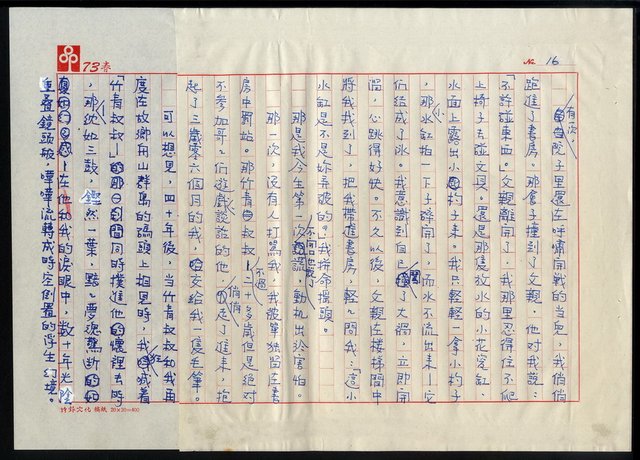 № 16
73春
有一次
院子里還在呼嘯開戰的当兒，我俏俏
跑進了書房。那會子撞到了父親。他对我說：
「不許碰東西。」父親離開了，我那里忍得住不爬
上椅子去碰文具。還是那隻放水的小花瓷缸，
水面上露出小杓子來。我只輕輕一拿小杓子
，那小水缸拍一下子碎開了，而水不流出來！它
们结成了冰。我意識到自己闖了大禍，立即開
溜，心跳得好快。不久以後，父親在楼梯間中
將我找到了，把我帶進書房，輕問我：「這小
水缸是不是妳弄破的。」我拼命搖頭。
那是我今生第一次不開口也說了謊，動机出於害怕。
那一次，沒有人打罵我，我被單獨留在書
房中罰站。那竹青叔叔！不過二十多歲但是絕对
不參加哥、們遊戲說話的他，悄悄走了進來，抱
起了三歲零六個月的我，交給我一隻毛筆。
可以想見，四十年後，当竹青叔叔和我再
度在故鄉舟山群島的碼頭上相見時，我狂喊着
「竹青叔叔！」同時撲進他懷裡去時
，那欣如三鼓，鏗然一葉，黯夢魂驚斷的
！在他和我的淚眼中，數十年光陰
重叠鏡頭般，嘩嘩流轉成時空倒置的浮生幻境。
特錄文化 稿紙 20×20=400